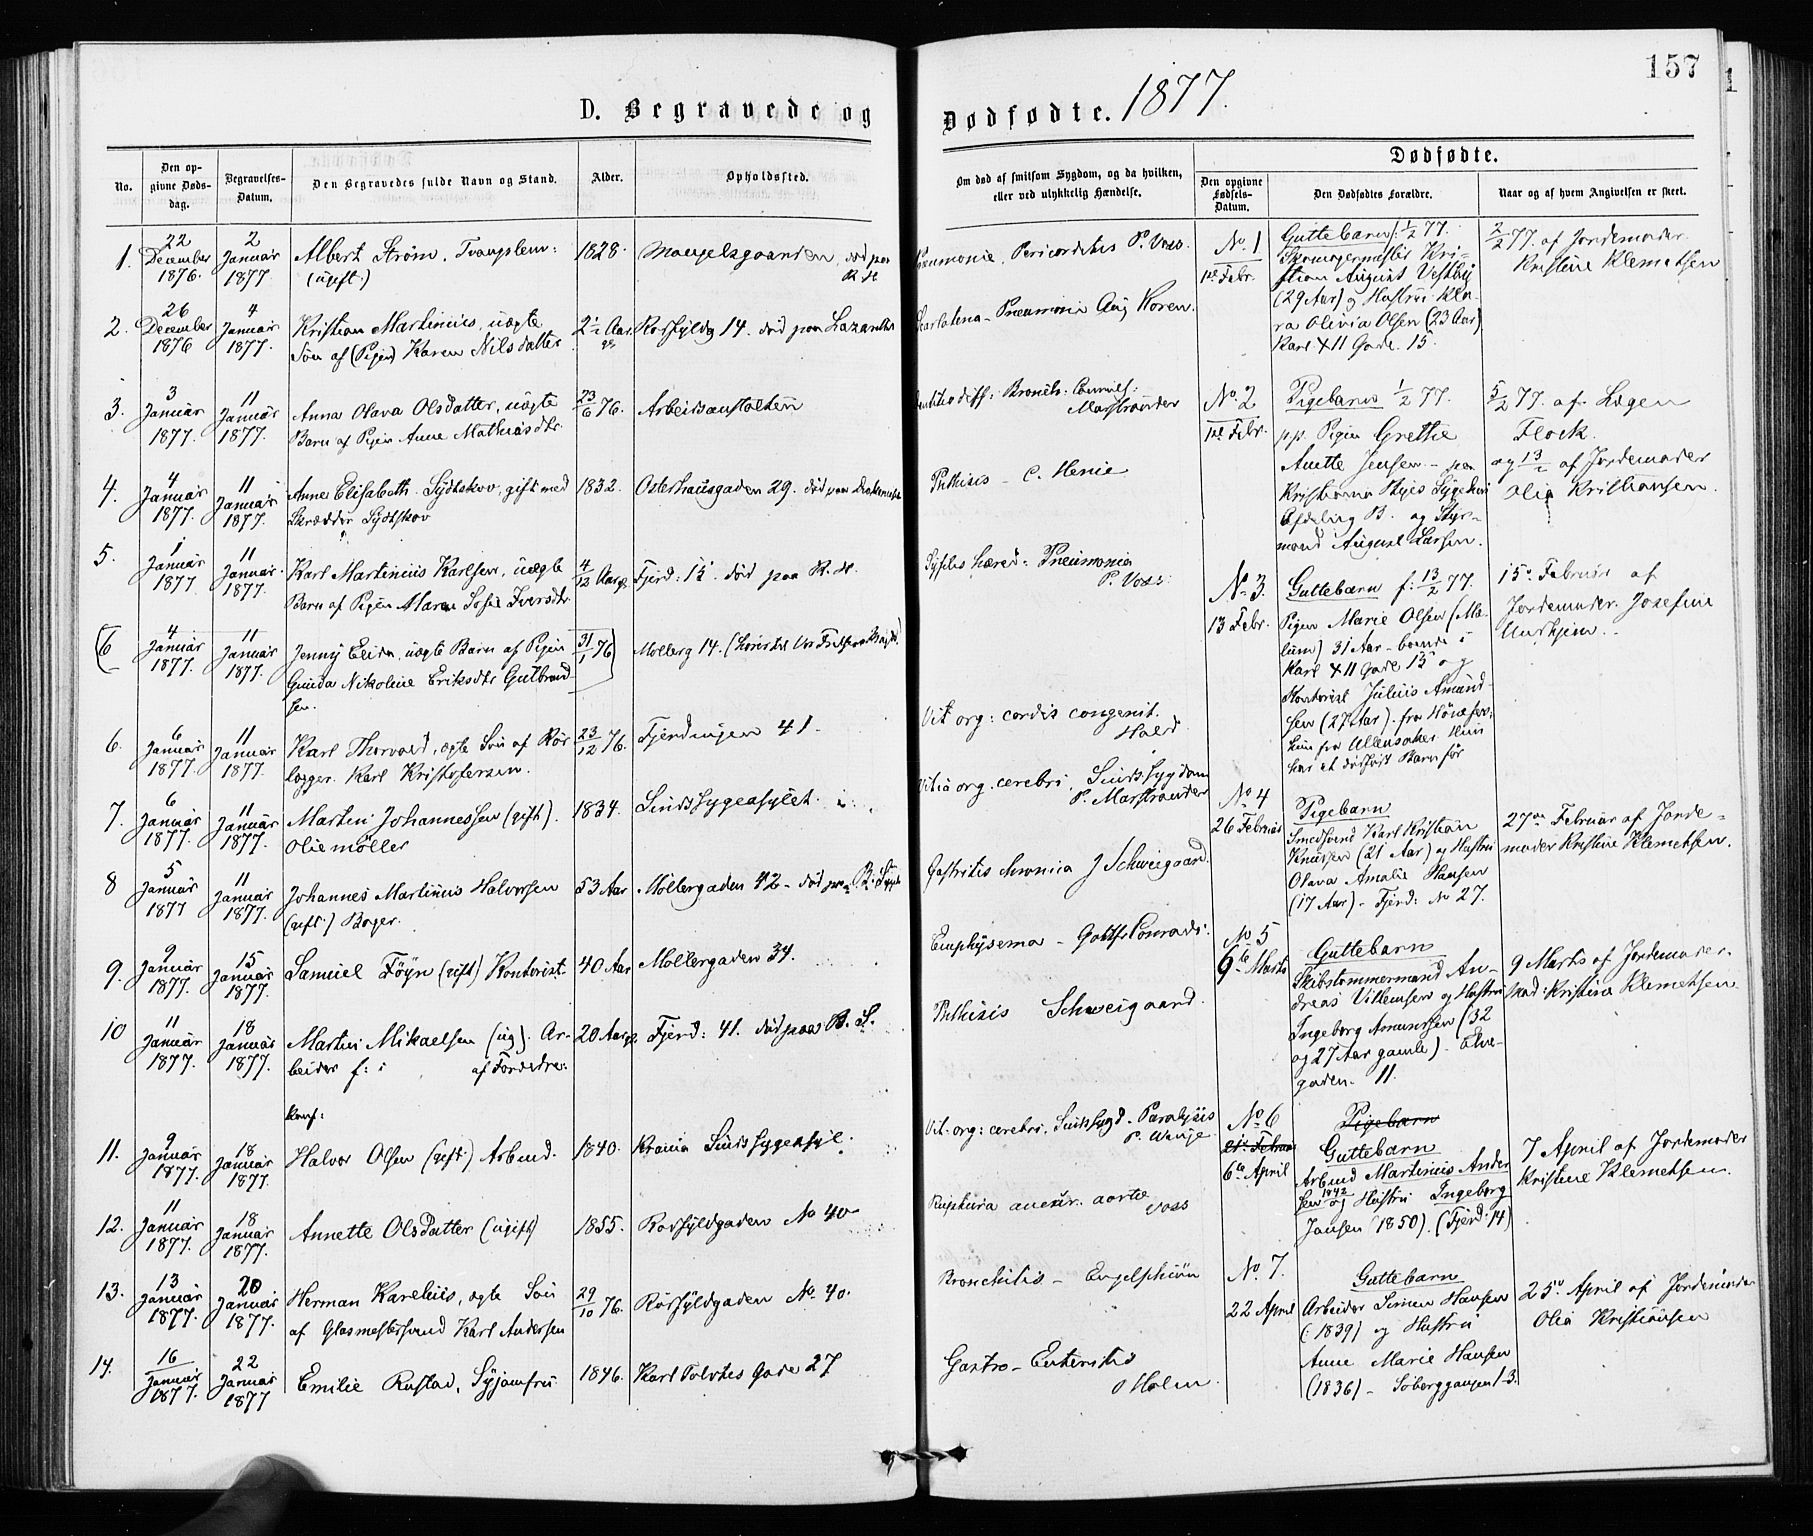 157
D. Begravede og Dødfødte. 1877.
No.
Den opgivne Dødsdag.
Begravelses-Datum.
Den Begravedes fulde Navn og Stand.
Alder.
Opholdssted.
Om død af smitsom Sygdom, og da hvilken, eller ved ulykkelig Hændelse.
Dødfødte.
Den opgivne Fødsels-Datum.
Den Dødfødtes Forældre.
Naar og af hvem Angivelsen er skeet.
1. 22 December 1876. 2 Januar 1877 Albert Strøm, 1828.
(ugift.) død paa R. H
Pericarditis P. Voss.
2. 26 December 1876 4 Januar 1877. Kristian Martinius, uægte 2 1/2 Aar 14. død paa Lazarethet
Søn af (Pigen) Karen Nilsdatter
Scarlatina - Pneumonia Aug Koren.
3. 3 Januar 1877. 11 Januar 1877. Anna Olava Olsdatter, uægte 23/6 76. Arbeidsanstalten
Barn af Pigen Anne Mathiasdtr.
Marstrander
4. 4 Januar 1877. 11 Januar 1877. Anne Elisabeth gift med 1832. Osterhausgaden 29. død paa
Skrædder
Phthisis - C. Henie
5. 1 Januar 1877 11 Januar 1877. Karl Martinius Karlsen, uægte 4/12 Aar Fjerd: 15. død paa R. H.
Barn af Pigen Maren Sofie Iversdtr.
Pneumonia
P. Voss
(6 4 Januar 1877. 11 Januar 1877. Jenny Elida, uægte Barn af Pigen 31/1 76) Mollerg 14.
Gunda Nikoline Eriksdtr Gulbrandsen.
6. 6 Januar 1877. 11 Januar 1877. Karl Thorvald, ægte Søn af Rørlægger Karl Kristofersen. 23/12 76. Fjerdingen 41.
Vit org: cordis congenit.
Hald
7. 6 Januar 1877. 11 Januar 1877. Martin Johannessen (gift). 1834. Sindssygeasylet.
Oliemøller
Vitia org. cerebri, Sindssygdom
P. Marstrander
8 5 Januar 1877 11 Januar 1877. Johannes Martinius Halvorsen 53 Aar Møllergaden 42 - død paa
(gift.) Bager.
Gastritis chronica J Schweigaard.
9. 9 Januar 1877. 15 Januar 1877. Samuel Føyn (gift) Kontorist. 40 Aar Møllergaden 34.
Emphysema - Conradi:
10 11 Januar 1877. 18 Januar 1877. Martin Mikaelsen (ug). Ar- 20 Aar Fjerd: 41. død paa B. S.
beider f: i af Forældre:
konf:
Phthisis Schweigaard.
11. 9 Januar 1877. 18 Januar 1877. Halvor Olsen (gift.) Arbmd. 1840. Krania Sindssygeasyl.
Vit. org: cerebri, Sindssygd - Paralysis
P. Winge
12. 11 Januar 1877. 18 Januar 1877. Annette Olsdatter (ugift) 1855. Rødfyldgaden No 40
Ruptura aneur. aortæ
Voss
13. 13 Januar 1877. 20 Januar 1877. Herman Karelius, ægte Søn 29/10 76. Rødfyldgaden No. 40.
af Glasmestersvend Karl Andersen
Bronchitis - Engelschiøn
14. 16 Januar 1877. 22 Januar 1877 Emilie Rustad, Syjomfru 1846. Karl Tolvtes Gade 27
Gastro - Enteritis
Holm
No. 1 1ste Febr.
Guttebarn f: 1/2 77.
Skomagermester Kri-
stian August Vestby
(29 Aar) og Hustru Kla-
ra Olivia Olsen (23 Aar)
Karl XII Gade. 15.
2/2 77. af Jordemoder
Kristine Klemetsen
No. 2 1ste Febr.
Pigebarn 1/2 77.
pp. Pigen Grethe
Anette Jensen - paa
Kristiania
Afdeling B. og Styr-
mand August Larsen.
5/2 77. af Lægen
Flock.
og 13/2 af Jordemoder
Olia Kristiansen.
No. 3. 13 Febr.
Guttebarn f: 13/2 77.
Pigen Marie Olsen (
31 Aar - boende i
Karl XII Gade 15 og
Kontorist Julius Amund-
sen (27 Aar). fra Hønefos,
hun fra Ullensaker. Hun
har et dødfødt Barn før
15de Februar af
Jordemoder Josefine
No 4 26 Februar
Pigebarn
Smedsvend Karl Kristian
Knudsen (21 Aar) og Hustru
Olava Amalie Hansen
(17 Aar) - Fjerd: No 27.
27de Februar af Jorde-
moder Kristine Klemetsen.
No 5 9de Marts
Guttebarn
Skibstømmermand An-
dreas Villemsen og Hustru
Ingeborg Amundsen (32
og 27 Aar gamle) - Elve-
gaden. 11.
9 Marts af Jordemoder
Kristine Klemetsen
No 6
6te April
Pigebarn
Guttebarn
Arbmd Martinius Ander
sen 1842 og Hustru Ingeborg
Jansen (1850). (Fjerd: 14)
7 April af Jordemoder
Kristine Klemetsen.
No. 7. 22 April
Guttebarn
Arbeider Simen Hansen
(1839) og Hustru
Anne Marie Hansen
(1836) -
25de April af Jordemoder
Olia Kristiansen